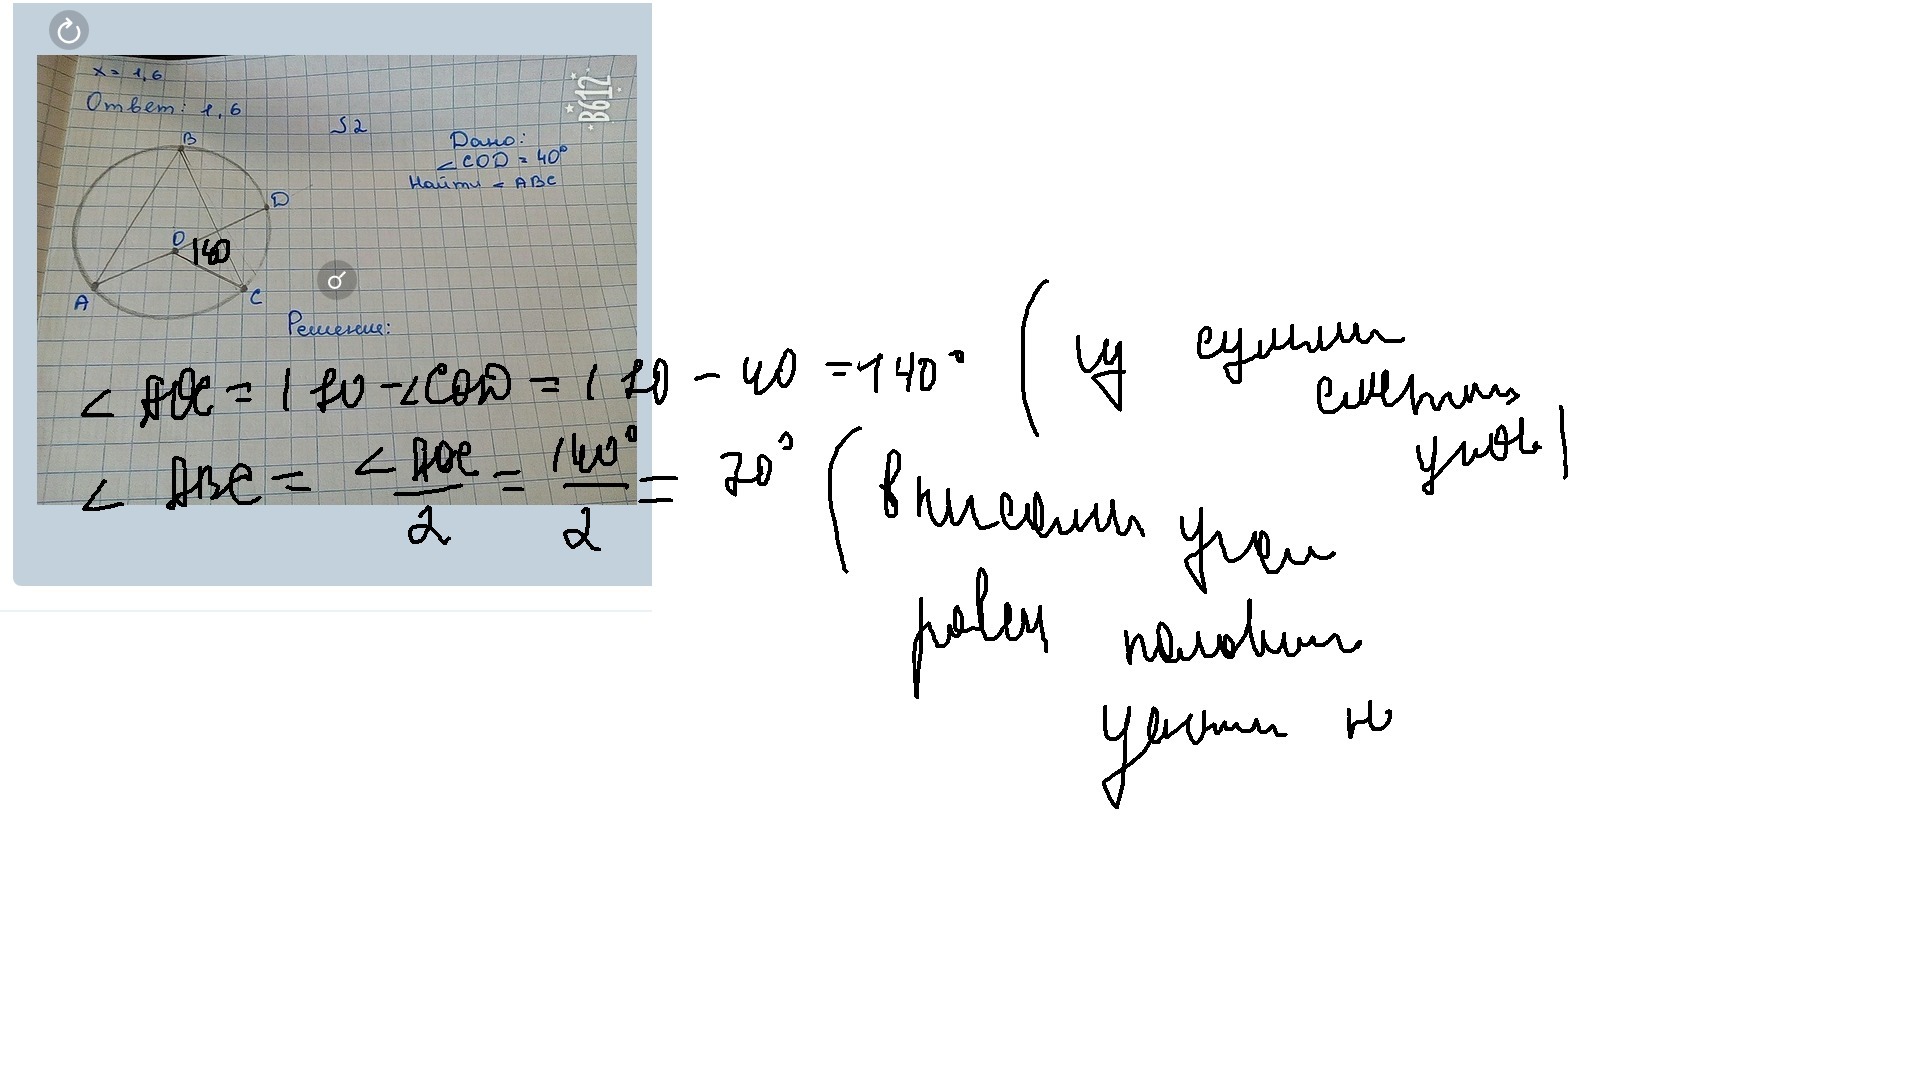 x = 1,6
Ответ: 1,6
√2
B612
Дано:
∠COD = 40°
Найти ∠ ABC
B
D
O
140
A
C
Решение:
∠ AOC = 180 - ∠COD = 180 - 40 = 140° (из суммы
смежных
углов)
∠ ABC = ∠ AOC / 2 = 140° / 2 = 70° (вписанный угол
равен половине